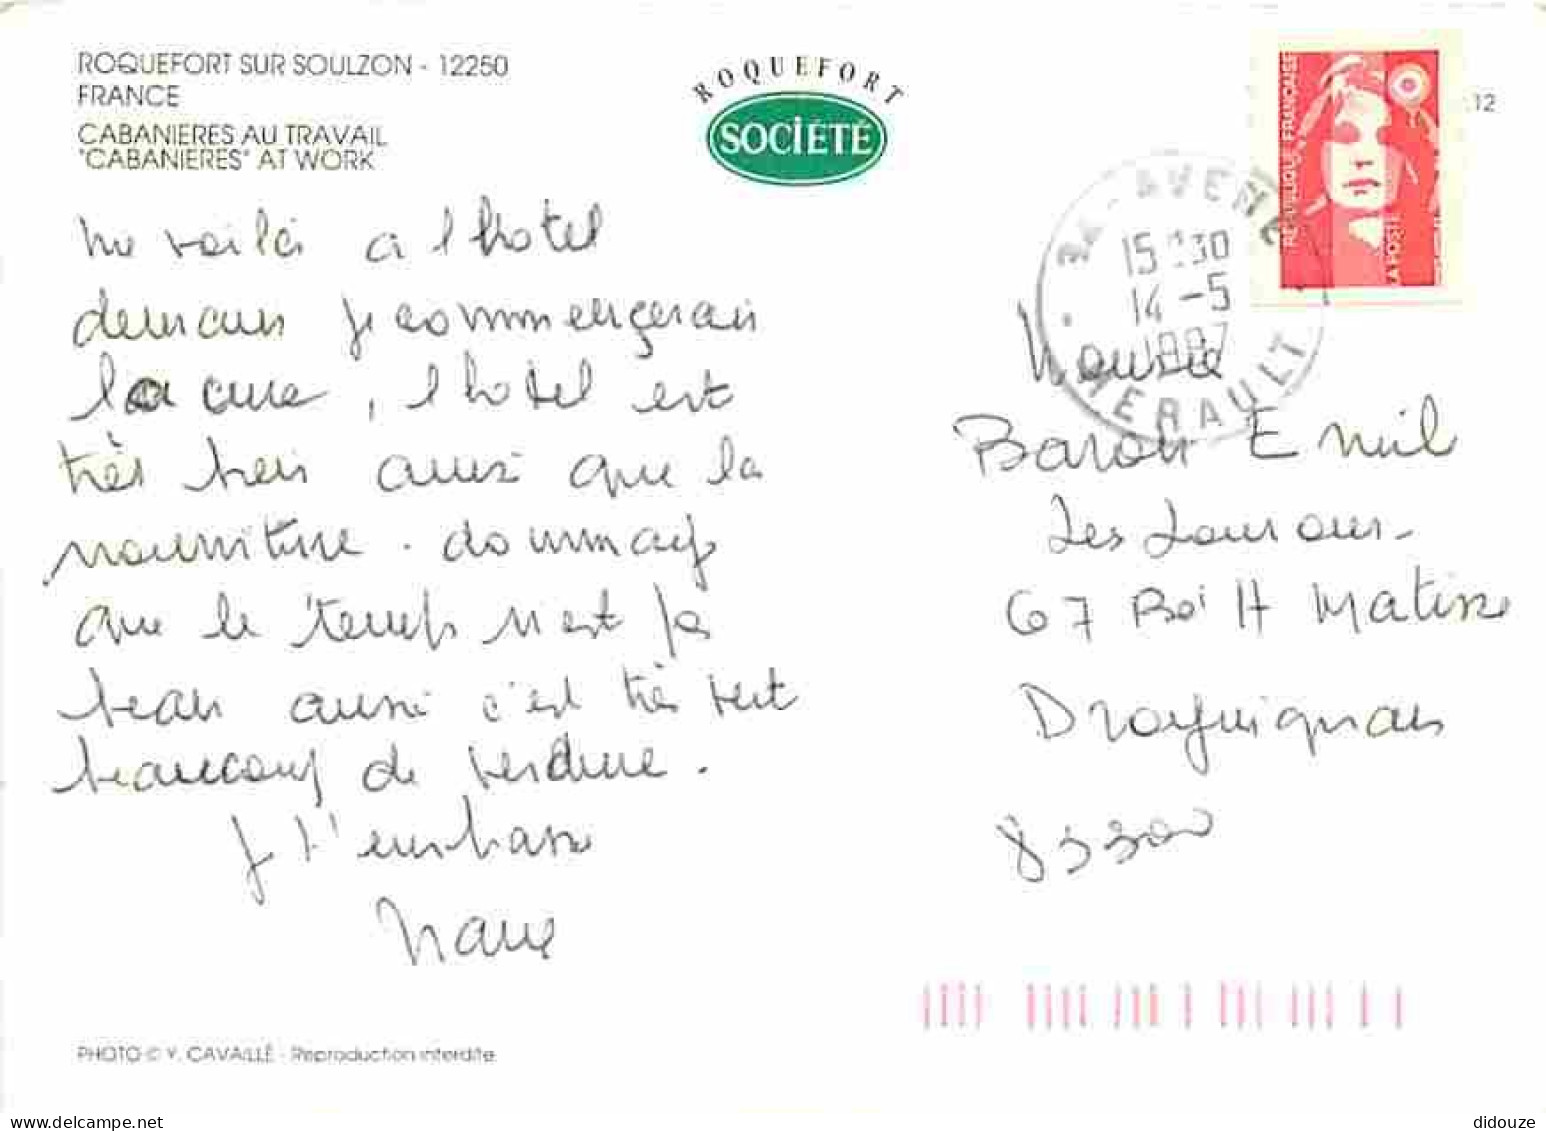 ROQUEFORT SUR SOULZON - 12250
FRANCE
CABANIERES AU TRAVAIL
"CABANIERES" AT WORK
ROQUEFORT
SOCIÉTÉ
RÉPUBLIQUE FRANÇAISE
LA POSTE
12
34 - AVENE
14 -5
HERAULT
me voilà a l hotel
demain je commencerai
la cure, l hotel est
très bien aussi que la
nourriture. dommage
que le temps n est pas
beau aussi c'est très vert
beaucoup de verdure.
Je t'embrasse
Baron Emil
Les
67 Bd H Matisse
Draguignan
PHOTO © Y. CAVAILLÉ - Reproduction interdite
didouze